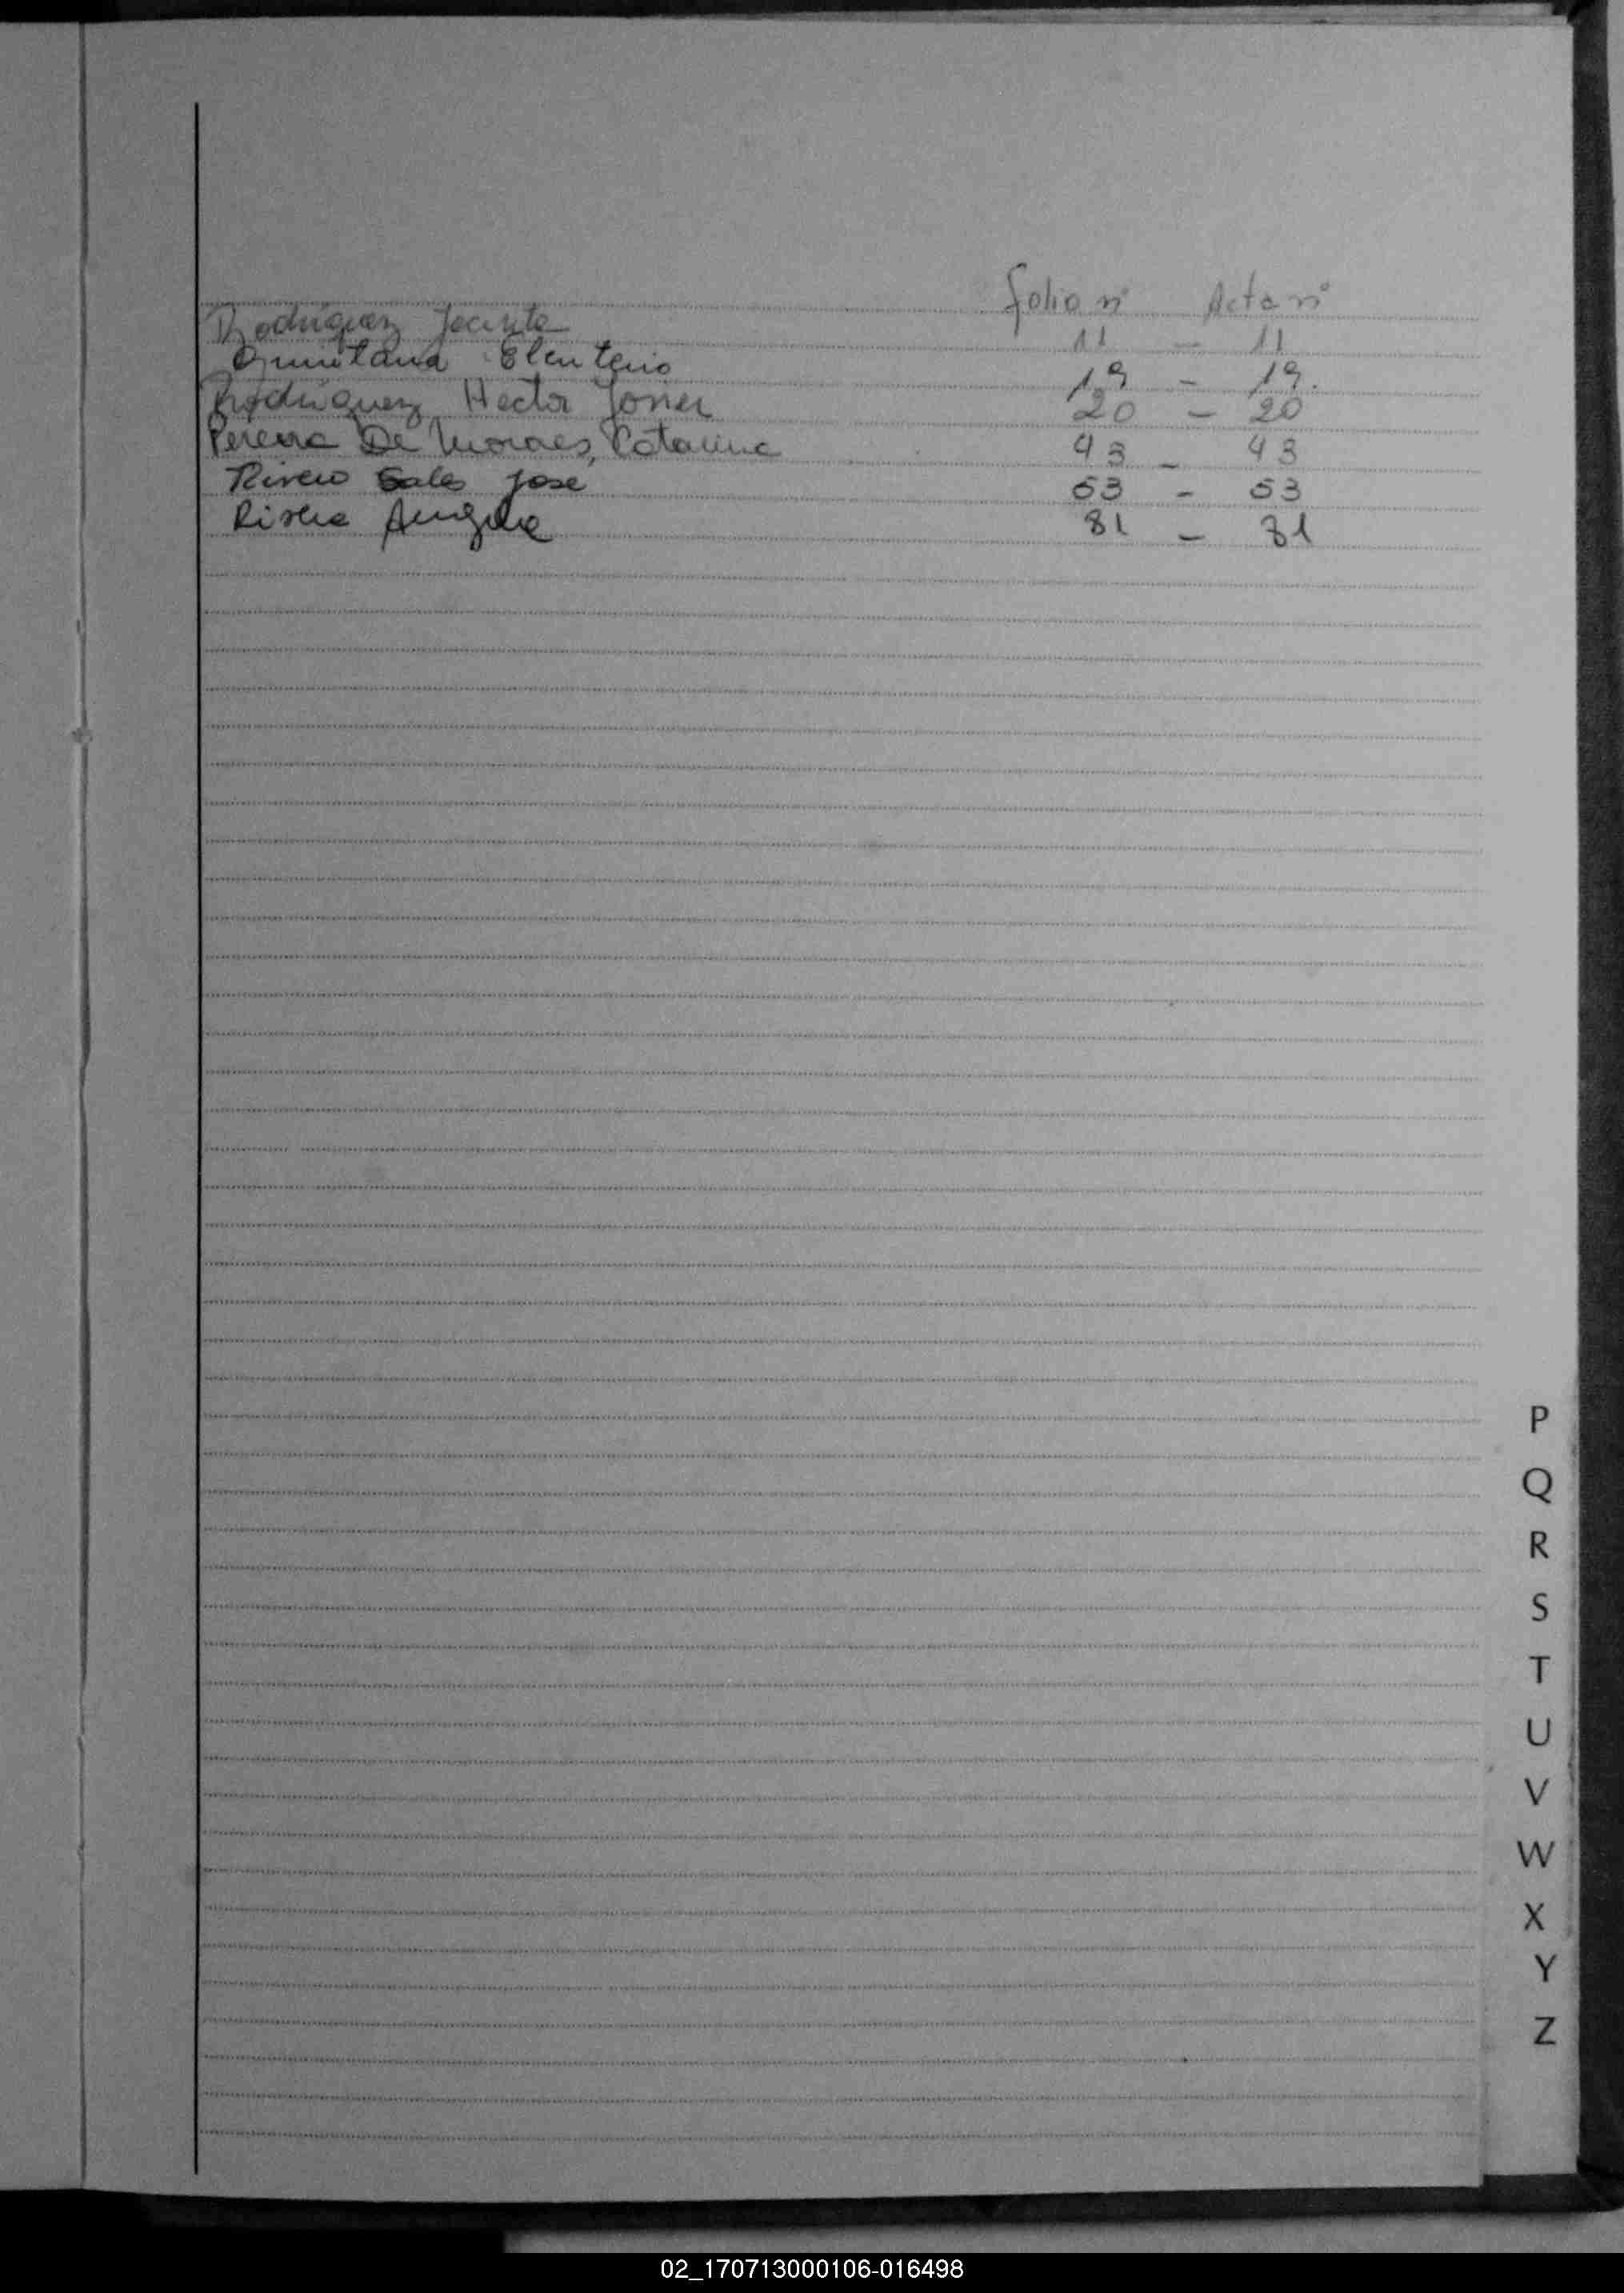 folio nº Acta nº
Rodriguez Jacinto 11 - 11
Quintana Eleuterio 19 - 19.
Rodriguez Hector Javier 20 - 20
Pereira De Moraes, Catarina 43 - 43
Rivero Sales Jose 53 - 53
Angela 81 - 81
P
Q
R
S
T
U
V
W
X
Y
Z
02_170713000106-016498